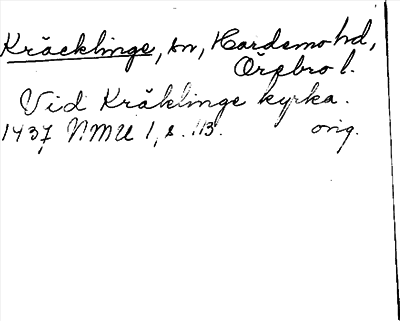 Kräcklinge, sn, Hardemo hd,
Örebro l.
Vid Kräklinge kyrka.
1437 NMU 1, s. 113. orig.